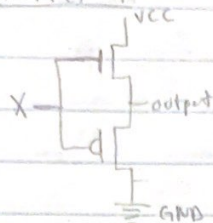 VCC
X
output
GND